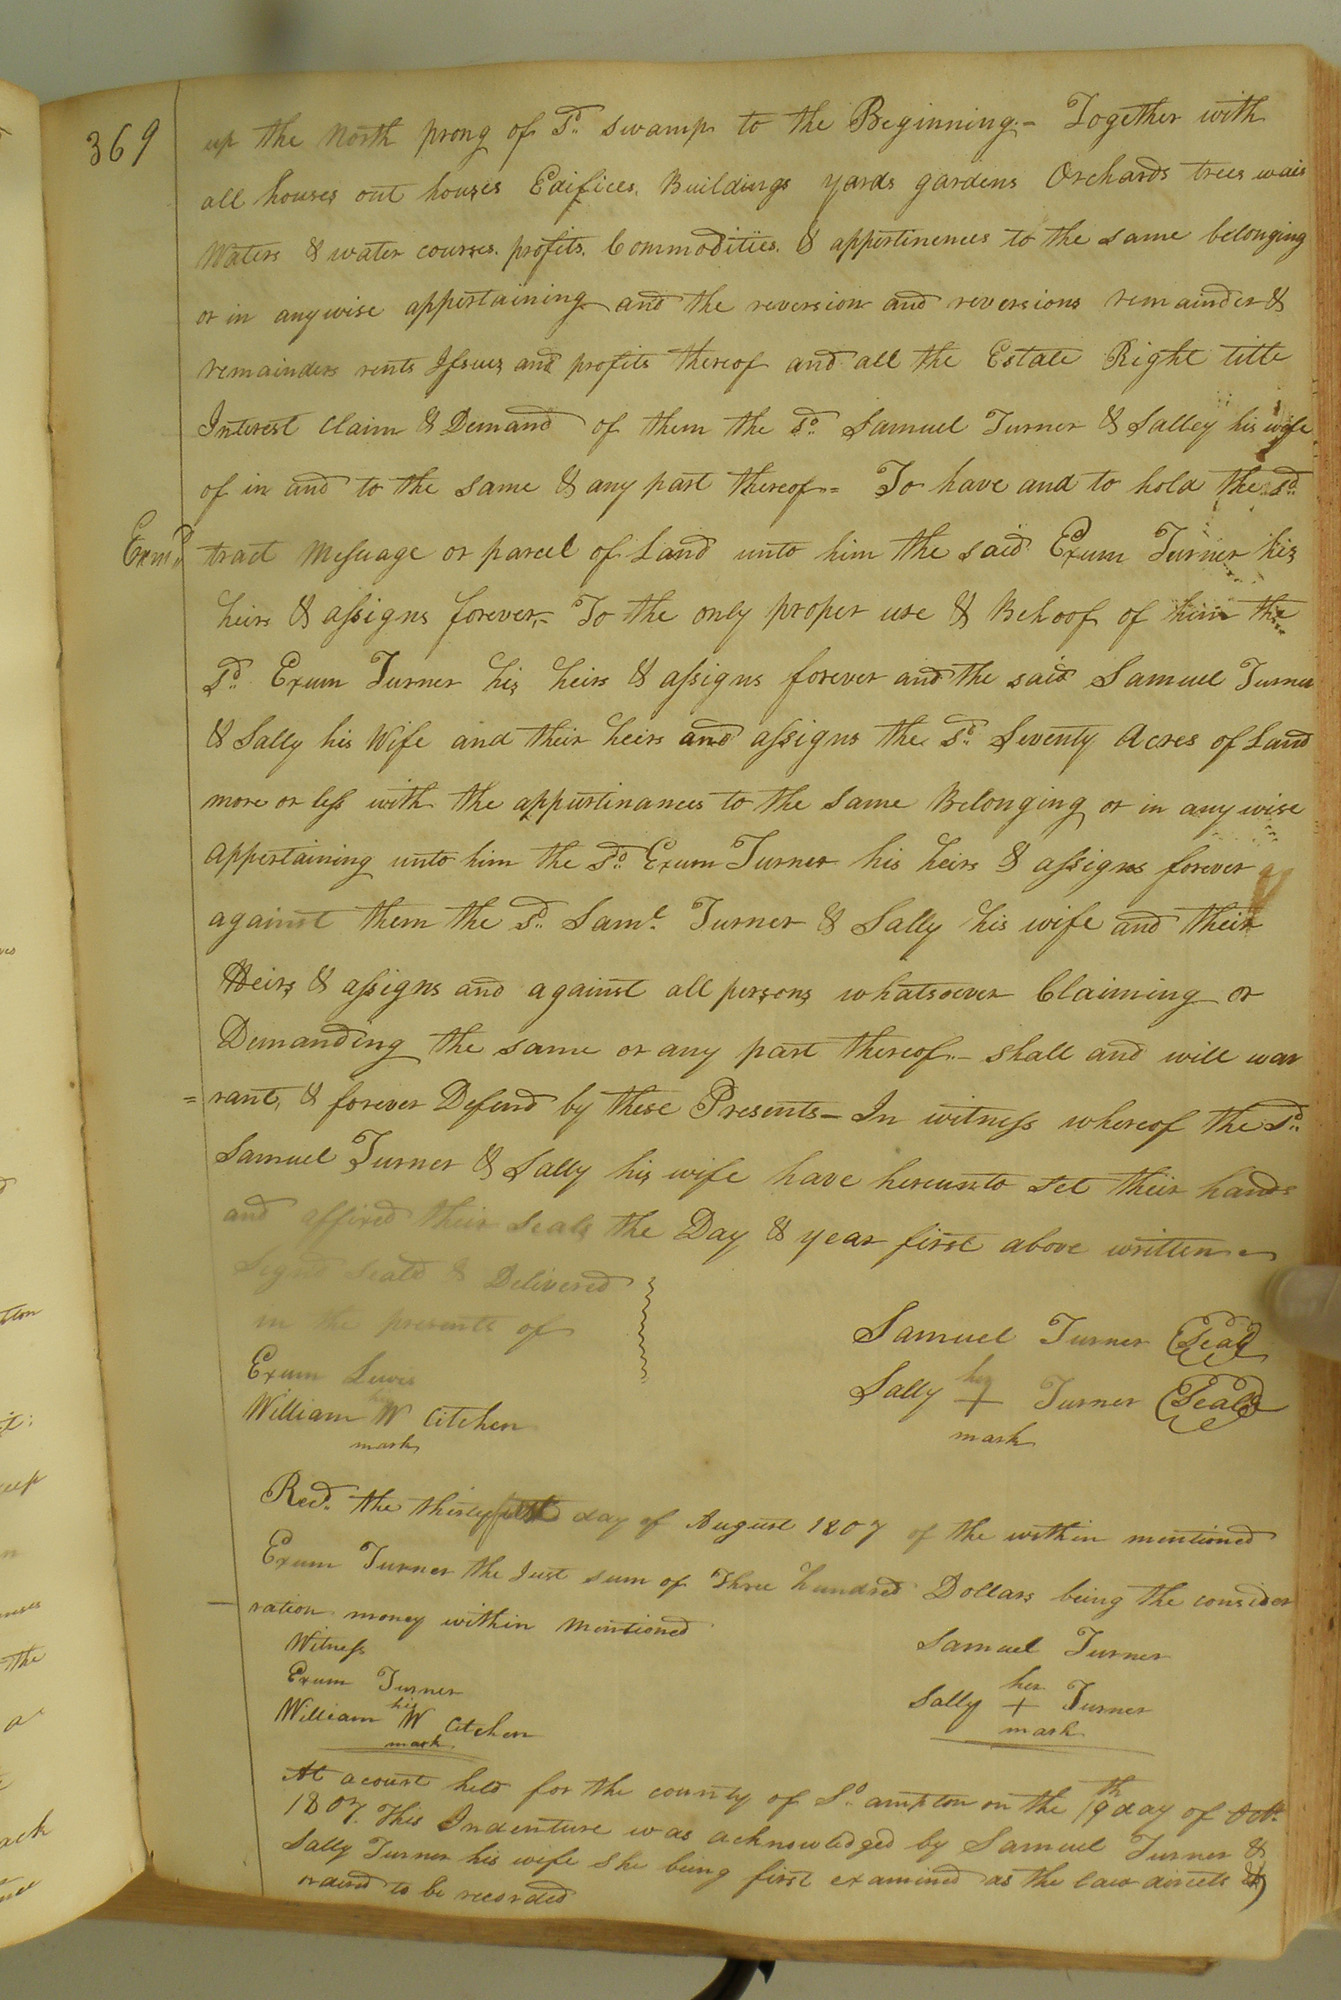 369
up the North prong of Sd. swamp to the Beginning.- Together with
all houses out houses Edifices Buildings yards gardens Orchards trees wais
Waters & water courses. profits. Commodities. & appertinences to the same belonging
or in anywise appertaining and the reversion and reversions remainder &
remainders rents Issues and profits thereof and all the Estate Right title
Interest Claim & Demand of them the sd. Samuel Turner & Salley his wife
of in and to the same & any part thereof= To have and to hold the sd.
Exmd. tract Messuage or parcel of Land unto him the said Exum Turner his
heirs & assigns forever,- To the only proper use & Behoof of him the
sd. Exum Turner his heirs & assigns forever and the said Samuel Turner
& Sally his Wife and their heirs and assigns the sd. Seventy Acres of Land
more or less with the appurtinances to the same Belonging or in any wise
appertaining unto him the sd. Exum Turner his heirs & assigns forever
against them the sd. Saml. Turner & Sally his wife and their
Heirs & assigns and against all persons whatsoever Claiming or
Demanding the same or any part thereof.- shall and will war
=rant, & forever Defend by these Presents- In witness whereof the sd.
Samuel Turner & Sally his wife have hereunto set their hands
and affixed their seals the Day & year first above written
Signd Seald & Delivered
in the presents of
Samuel Turner Seal
Exum Lewis
Sally her + Turner Seal
mark
William his W Citchen
mark
Recd. the thirty first day of August 1807 of the within mentioned
Exum Turner the Just sum of Three hundred Dollars being the consider
- ration money within mentioned
Witness
Samuel Turner
Exum Turner
Sally her + Turner
mark
William his W Citchen
mark
At a court held for the county of So.ampton on the 19th day of Octr.
1807. This Indenture was acknowledged by Samuel Turner &
Sally Turner his wife she being first examined as the law directs &
orderd to be recorded